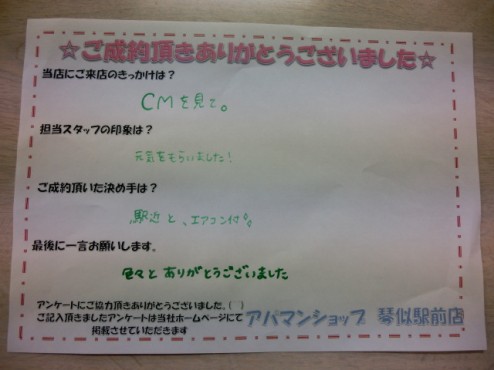 ☆ご成約頂きありがとうございました☆
当店にご来店のきっかけは？
CMを見て。
担当スタッフの印象は？
元気をもらいました!
ご成約頂いた決め手は？
駅近と、エアコン付
最後に一言お願いします。
色々と ありがとうございました
アンケートにご協力頂きありがとうございました。(　)
ご記入頂きましたアンケートは当社ホームページにて
掲載させていただきます
アパマンショップ 琴似駅前店